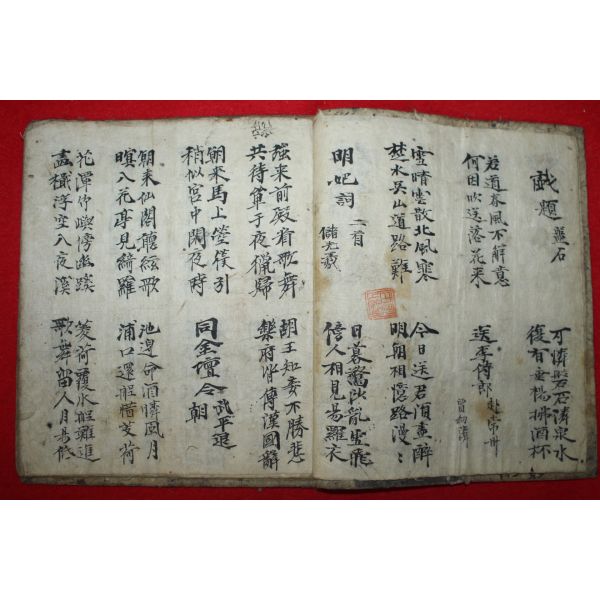 戯題 盤石
可憐磐石臨泉水
復有垂楊拂酒杯
若道春風不解意
何因吹送落花来
送李侍郎 赴常州
賈幼
雪晴雲散北風寒
楚水吳山道路難
今日送君須盡醉
明朝相憶路漫〻
明妃詞 二首
儲光羲
日暮驚沙乱雪飛
傍人相見易羅衣
強来前殿看歌舞
共待單于夜獵歸
胡王知妾不勝悲
樂府皆傳漢國辭
朝来馬上箜篌引
稍似宮中閑夜時
同金壇令朝 武平
朝来仙閣聽絃歌
暝入花亭見綺羅
池邊命酒憐風月
浦口還船惜芰荷
花潭竹嶼傍幽蹊
畫楫浮空入夜溪
芰荷覆水船難進
歌舞留人月易低